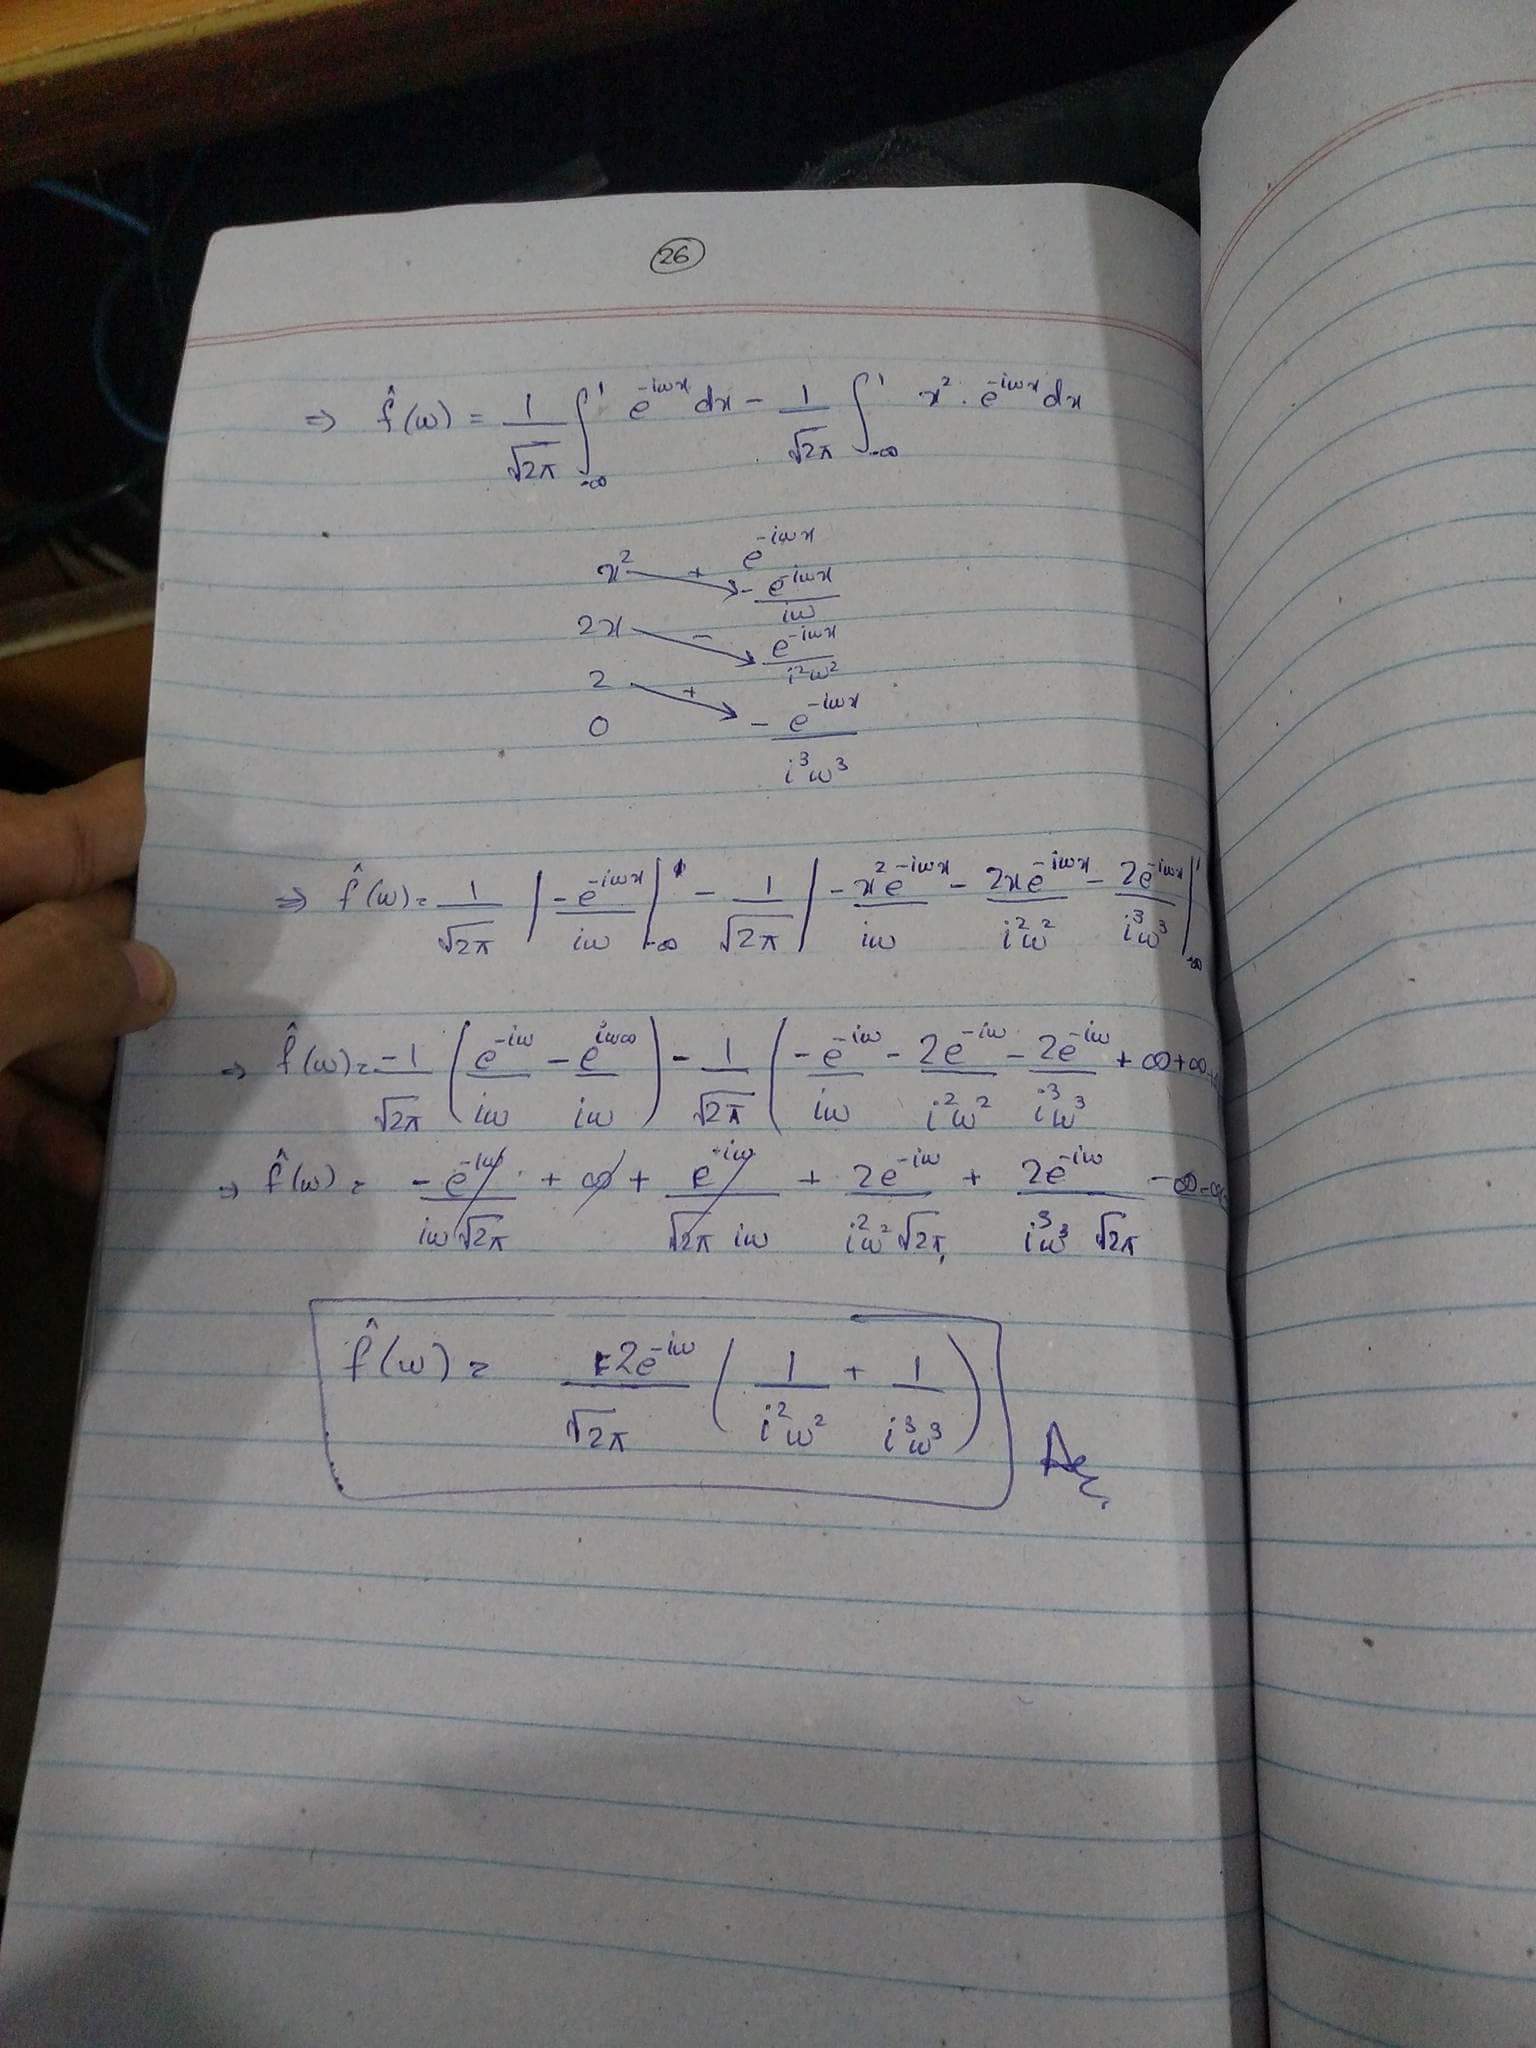 26
⇒ f̂(ω) = 1/√2π ∫_{-∞}^{1} e^{-iωx} dx - 1/√2π ∫_{-∞}^{1} x² · e^{-iωx} dx
x² + e^{-iωx}
- e^{-iωx}/iω
2x - e^{-iωx}/i²ω²
2 +
0 - e^{-iωx}/i³ω³
⇒ f̂(ω) = 1/√2π | -e^{-iωx}/iω |_{-∞}^{1} - 1/√2π | - x² e^{-iωx}/iω - 2x e^{-iωx}/i²ω² - 2e^{-iωx}/i³ω³ |_{-∞}^{1}
⇒ f̂(ω) = -1/√2π ( e^{-iω}/iω - e^{iω∞}/iω ) - 1/√2π ( - e^{-iω}/iω - 2e^{-iω}/i²ω² - 2e^{-iω}/i³ω³ + ∞ + ∞
⇒ f̂(ω) = - e^{-iω}/iω√2π + ∞ + e^{-iω}/√2π iω + 2e^{-iω}/i²ω²√2π + 2e^{-iω}/i³ω³ √2π - ∞ - ∞
f̂(ω) = 2e^{-iω}/√2π ( 1/i²ω² + 1/i³ω³ )